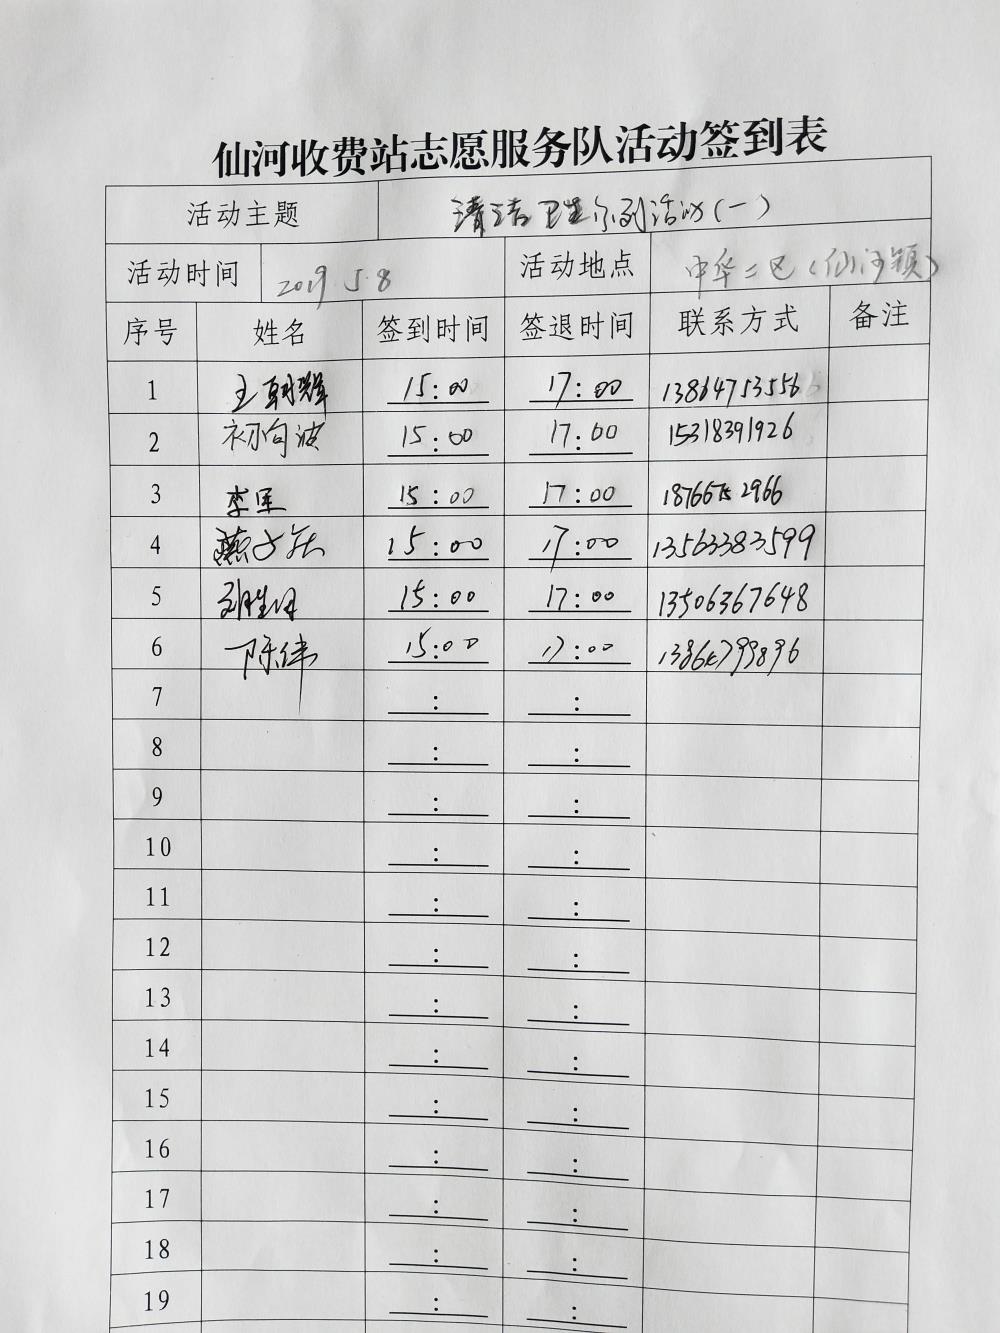 仙河收费站志愿服务队活动签到表
活动主题 清洁卫生系列活动(一)
活动时间 2019.5.8 活动地点 中华二区(仙河颖)
序号 姓名 签到时间 签退时间 联系方式 备注
1 王朝辉 15:00 17:00 13864753556
2 初向波 15:00 17:00 15318391926
3 李军 15:00 17:00 2966
4 燕 15:00 17:00 13563383599
5 15:00 17:00 13506367648
6 陈伟 15:00 17:00
7 : :
8 : :
9 : :
10 : :
11 : :
12 : :
13 : :
14 : :
15 : :
16 : :
17 : :
18 : :
19 : :